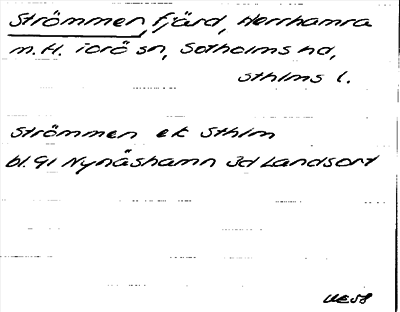 Strömmen, fjärd, Herrhamra
m.fl. i Torö sn, Sotholms hd,
Sthlms l.
Strömmen ek Sthlm
bl. 91 Nynäshamn Jd Landsort
UE58